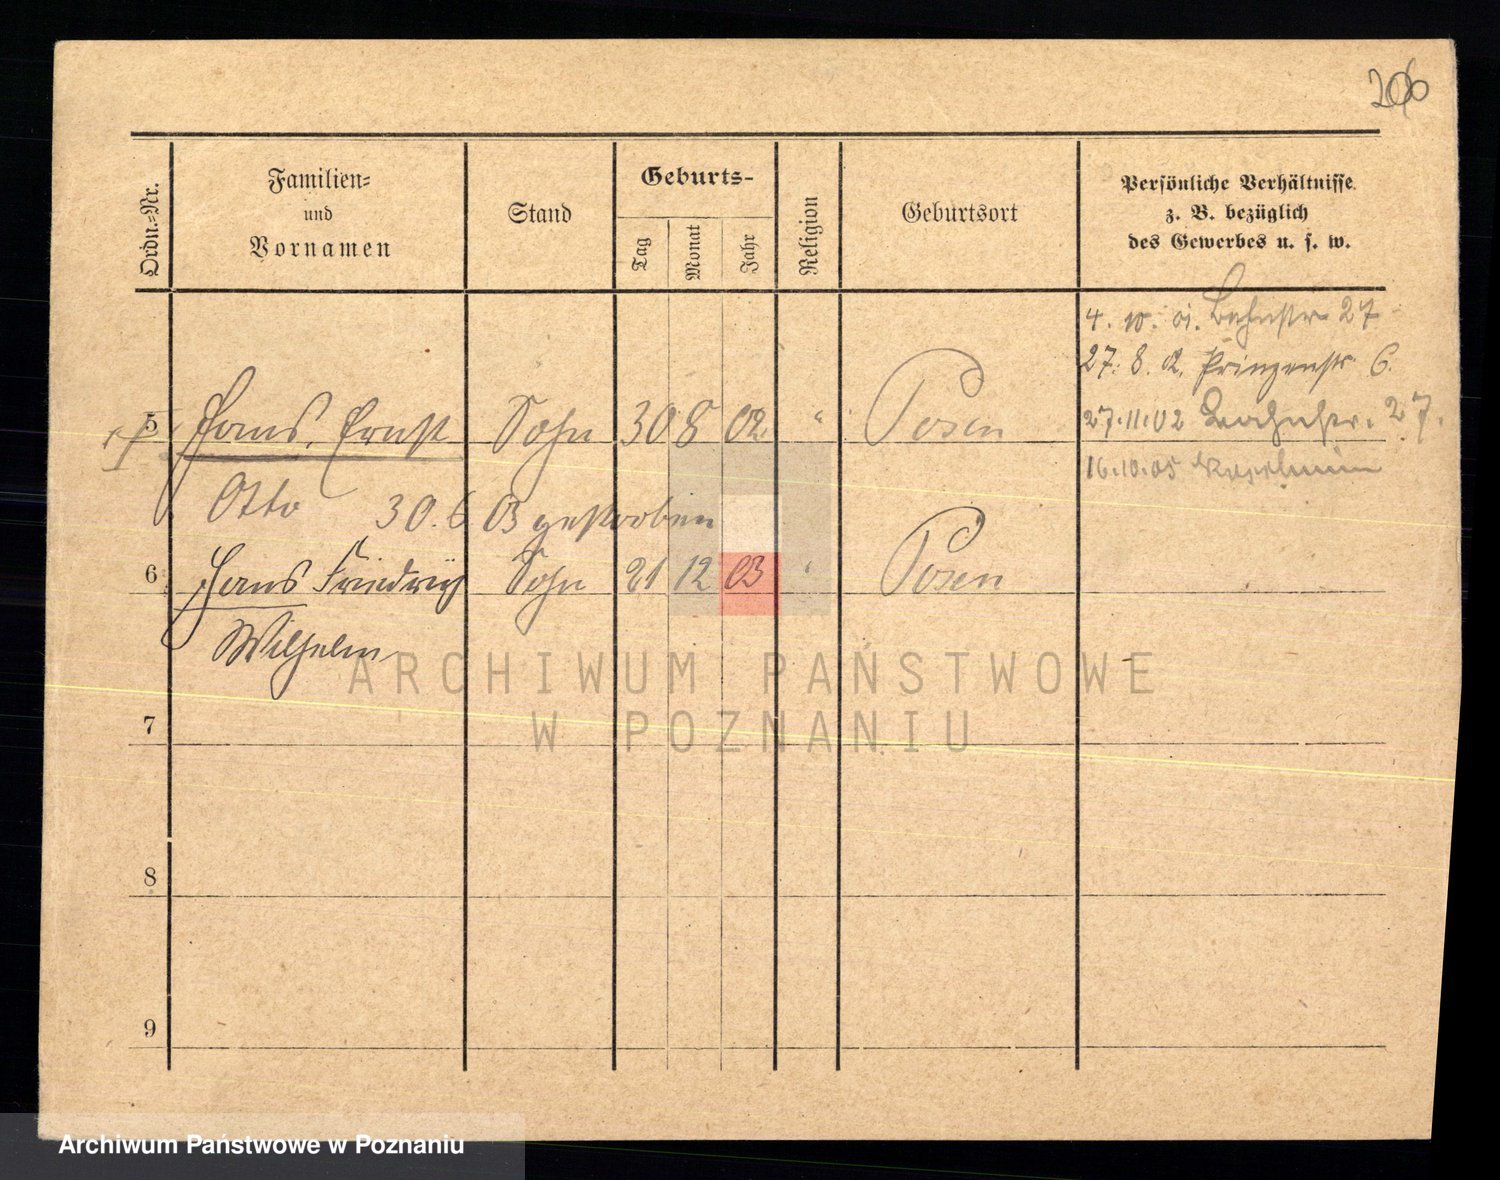 206
Ordn.=Nr.
Familien=
und
Vornamen
Stand
Geburts-
Tag
Monat
Jahr
Religion
Geburtsort
Persönliche Verhältnisse
z. B. bezüglich
des Gewerbes u. s. w.
4. 10. 01. Bahnstr. 27
27. 8. 02. Prinzenstr. 6.
5 Hans, Ernst Sohn 30 8 02 " Posen
27.11.02 27.
16.10.05
Otto 30. 6. 03 gestorben
6 Hans Friedrich Sohn 21 12 03 " Posen
Wilhelm
ARCHIWUM PAŃSTWOWE
W POZNANIU
7
8
9
Archiwum Państwowe w Poznaniu